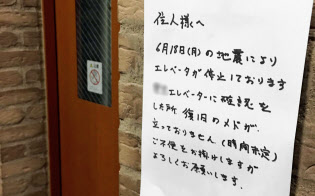 住人様へ
6月18日(月)の地震により
エレベータが停止しております
エレベーターに確認を
した所 復旧のメドが
立っておりません(時間未定)
ご不便をお掛けしますが
よろしくお願いします。